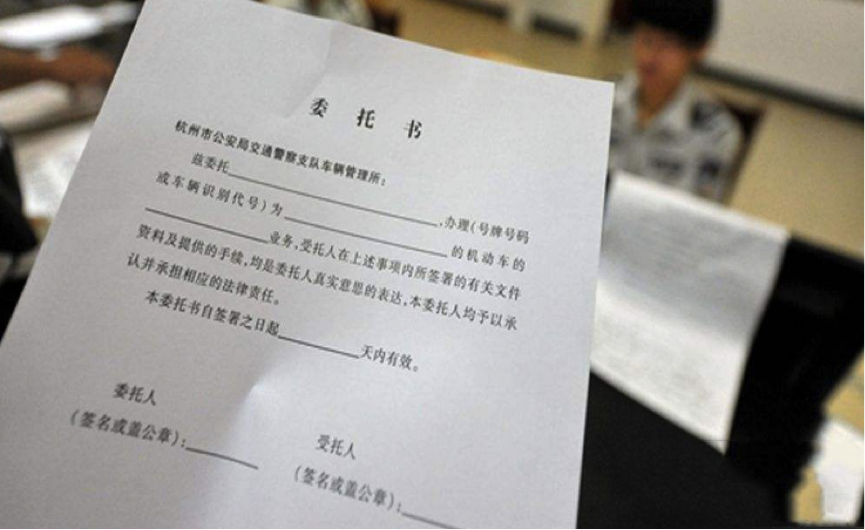 委托书
杭州市公安局交通警察支队车辆管理所：
兹委托________,办理(号牌号码
或车辆识别代号)为________的机动车的
________业务,受托人在上述事项内所签署的有关文件
资料及提供的手续,均是委托人真实意思的表达,本委托人均予以承
认并承担相应的法律责任。
本委托书自签署之日起________天内有效。
委托人
(签名或盖公章):________
受托人
(签名或盖公章):________